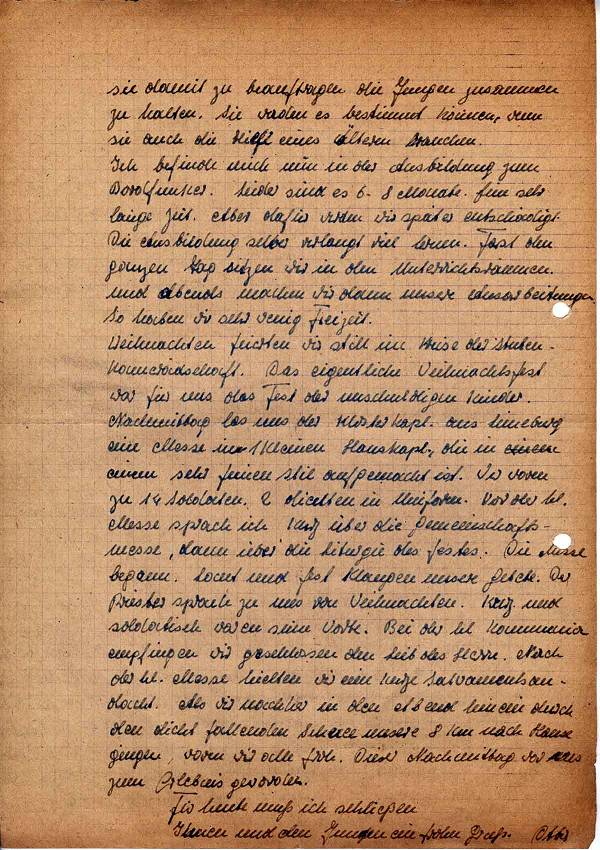 sie damit zu beauftragen die Jungen zusammen
zu halten. Sie werden es bestimmt können, wenn
sie auch die Hilfe eines Ältern brauchen.
Ich befinde mich nun in der Ausbildung zum
Bordfunker. Leider sind es 6-8 Monate. Eine sehr
lange Zeit. Aber dafür werden wir später entschädigt.
Die Ausbildung selber verlangt viel lernen. Fast den
ganzen Tag sitzen wir in den Unterrichtsräumen
und abends machen wir dann unsere Ausarbeitungen.
So haben wir sehr wenig Freizeit.
Weihnachten feierten wir still im Kreise der Stuben-
kameradschaft. Das eigentliche Weihnachtsfest
war für uns das Fest der unschuldigen Kinder.
Nachmittag las uns der aus Lüneburg
eine Messe in 1 kleinen Hauskapl., die in
einem sehr feinen Stil aufgemacht ist. Wir waren
zu 14 Soldaten. 2 dienten in Uniform. Vor der hl.
Messe sprach ich kurz über die Gemeinschafts-
messe, dann über die Liturgie des Festes. Die Messe
begann. Laut und fest klangen unsere Gebete. Der
Priester sprach zu uns von Weihnachten. Kurz und
soldatisch waren seine Worte. Bei der hl Kommunion
empfingen wir geschlossen den Leib des Herrn. Nach
der hl. Messe hielten wir eine kurze Sakramentsan-
dacht. Als wir nachher in den Abend hinein durch
den dicht fallenden Schnee unsere 8 km nach Hause
gingen, waren wir alle froh. Dieser Nachmittag war uns
zum Erlebnis geworden.
Für heute muß ich schließen
Ihnen und den Jungen ein frohen Gruß.